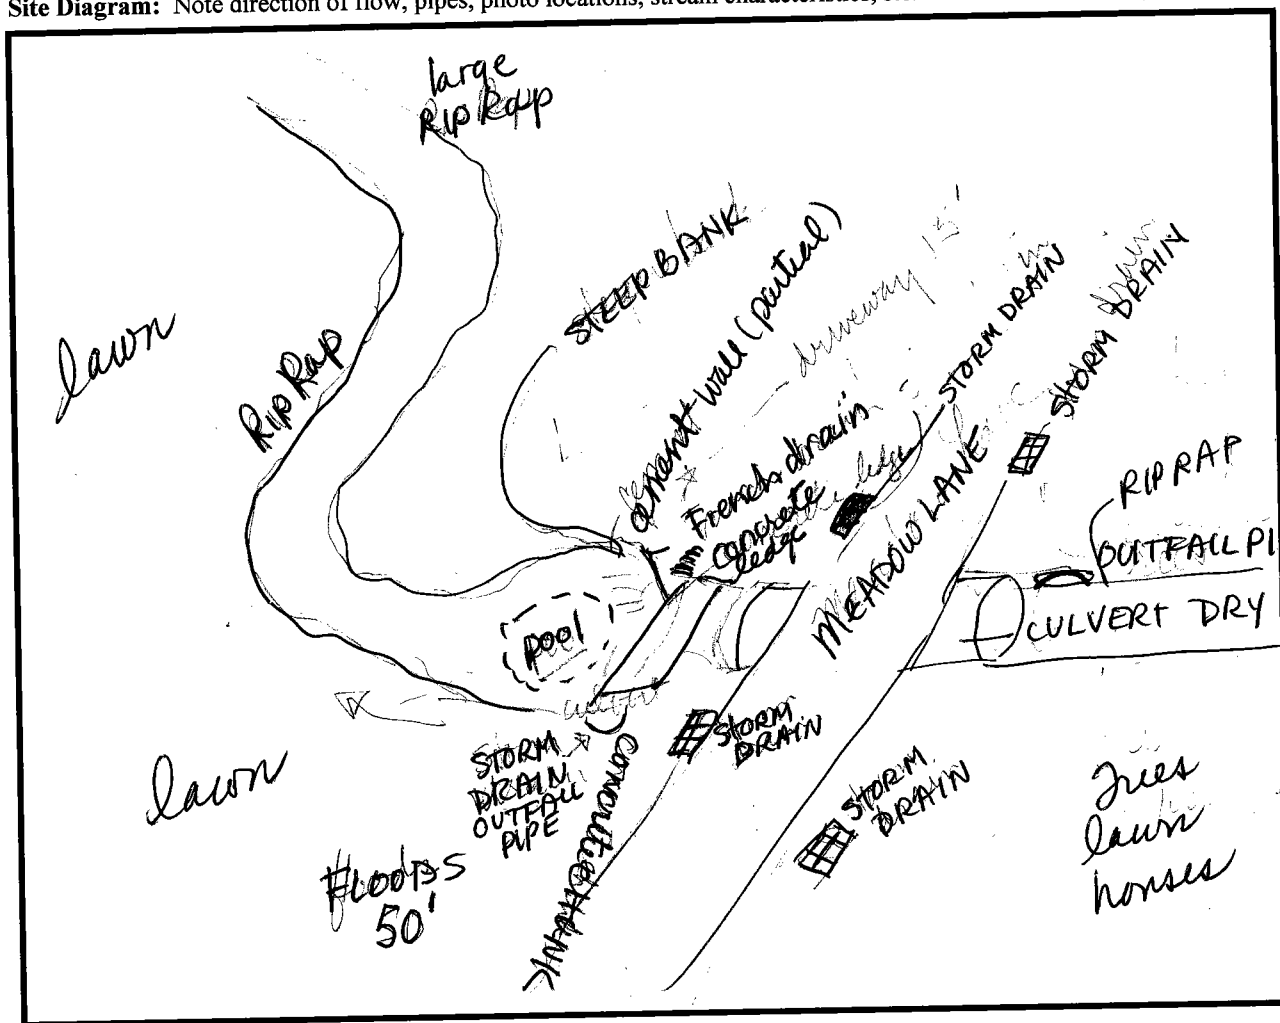 Site Diagram: Note direction of flow, pipes, photo locations, stream characteristics,
large
RIP Rap
STEEP BANK
cement wall (partial)
driveway 15'
STORM DRAIN
STORM DRAIN
lawn
Rip Rap
French drain
concrete
ledge
MEADOW LANE
RIP RAP
OUTFALL PI
CULVERT DRY
pool
culvert
STORM
DRAIN
OUTFALL
PIPE
STORM
DRAIN
lawn
STORM
DRAIN
Trees
lawn
houses
Floods
50'